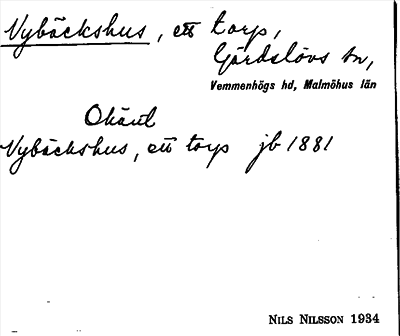 Vybäckshus, ett torp,
Gärdslövs sn,
Vemmenhögs hd, Malmöhus län
Okänt
Vybäckshus, ett torp jb 1881
NILS NILSSON 1934